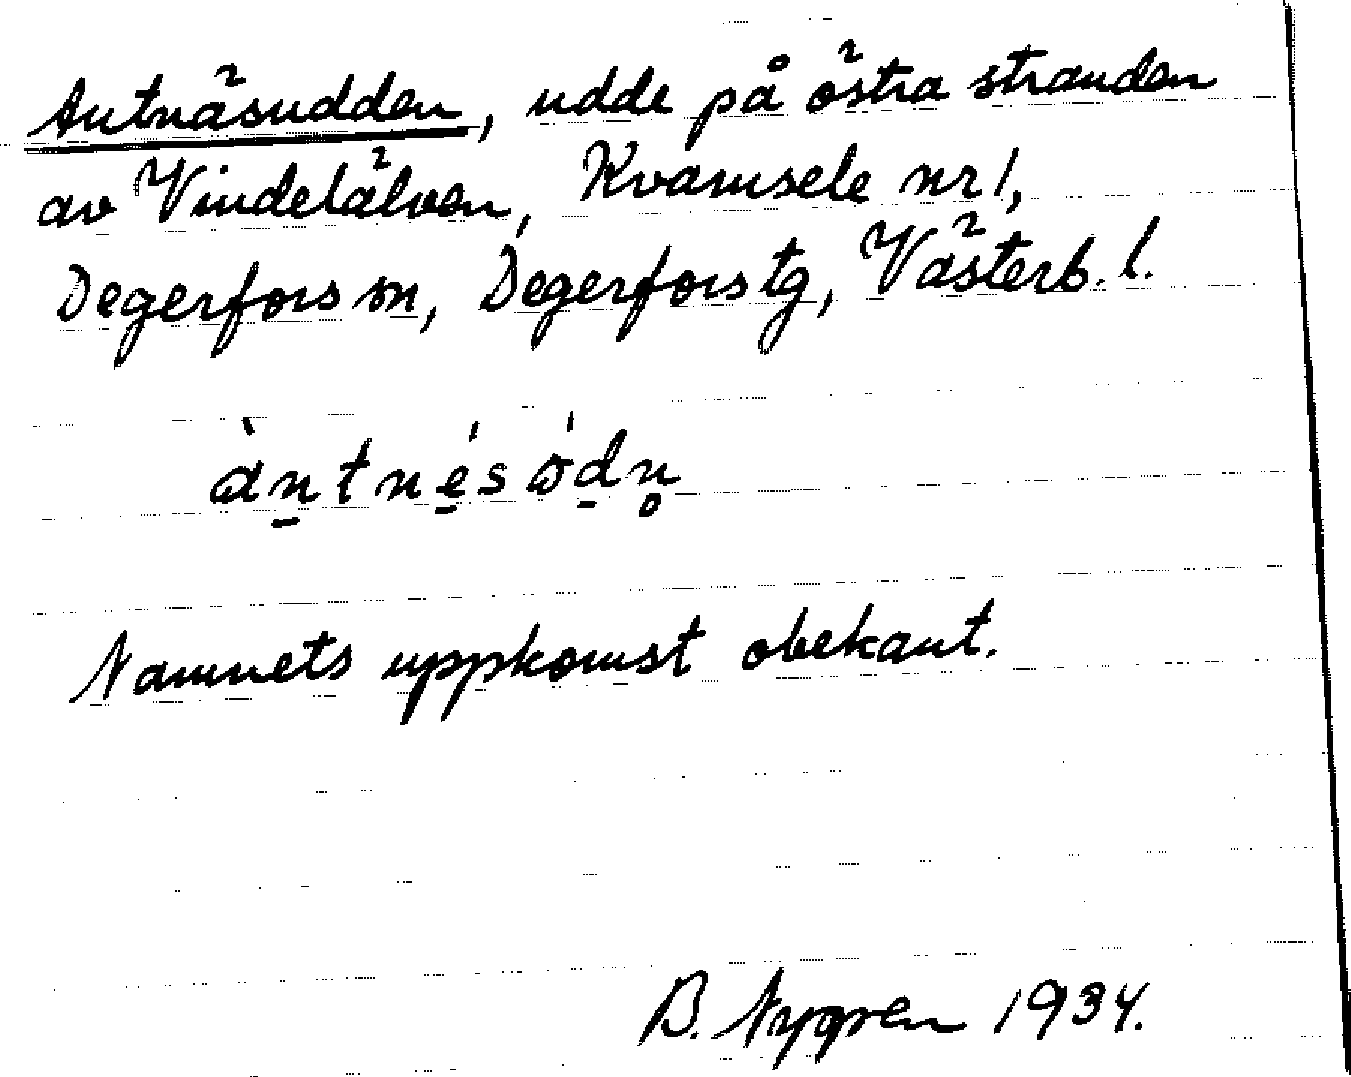 Antnäsudden, udde på östra stranden
av Vindelälven, Kvamsele nr 1,
Degerfors sn, Degerfors tg, Västerb. l.
àn̠tné̠sòd̠n̥
Namnets uppkomst obekant.
B. Nygren 1934.